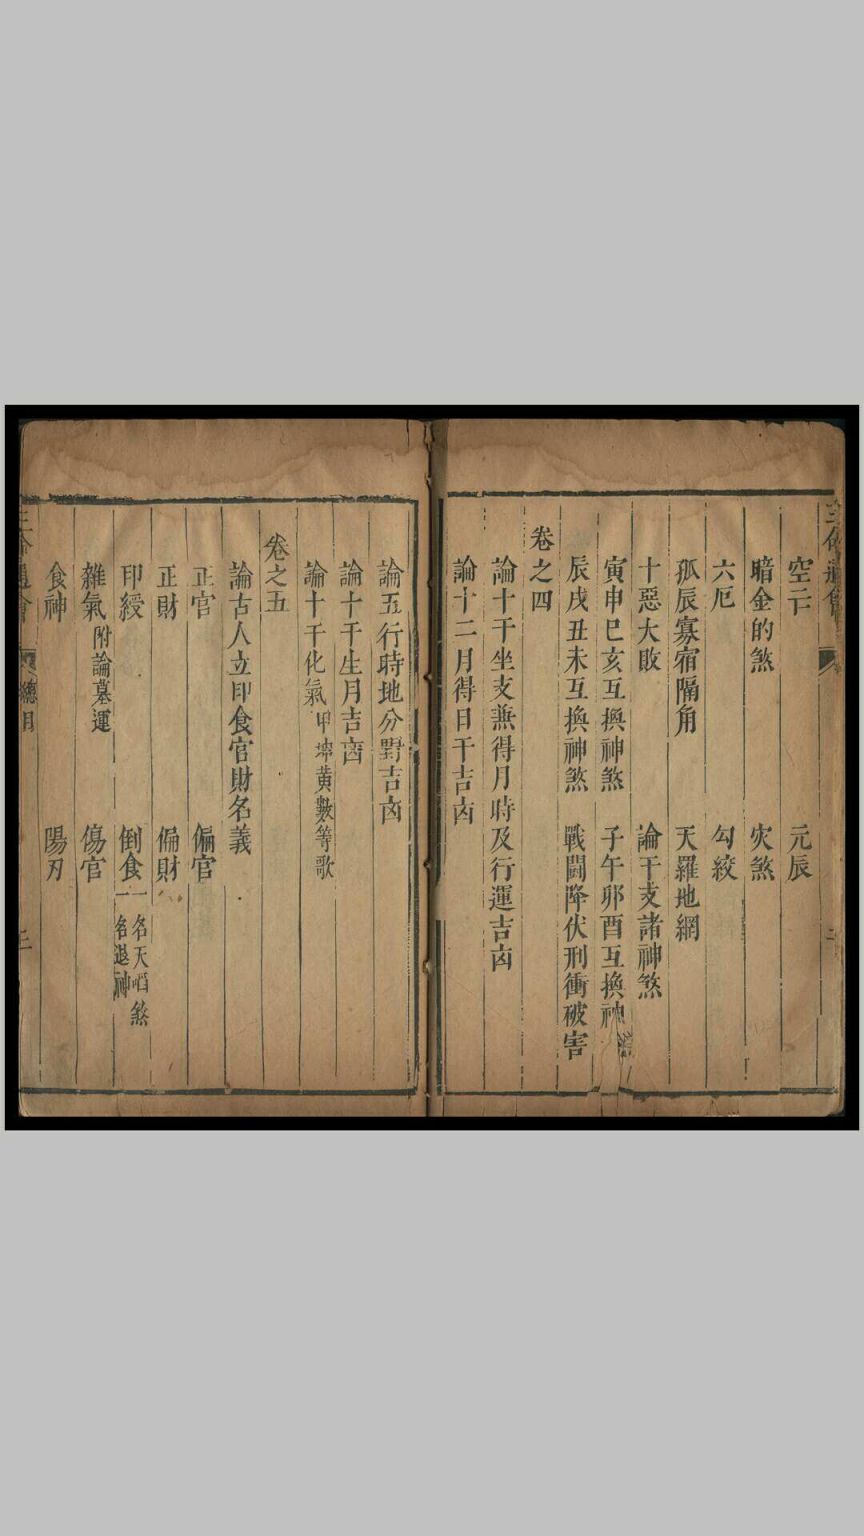 三命通會
空亡　元辰
暗金的煞　灾煞
六厄　勾絞
孤辰寡宿隔角　天羅地網
十惡大敗　論干支諸神煞
寅申巳亥互換神煞　子午卯酉互換神煞
辰戌丑未互換神煞　戰鬭降伏刑衝破害
卷之四
論十干坐支兼得月時及行運吉凶
論十二月得日干吉凶
論五行時地分野吉凶
論十干生月吉凶
論十干化氣
卷之五
論古人立印食官財名義
正官　偏官
正財　偏財
印綬　倒食一名天㖵煞一名退神
雜氣附論墓運　傷官
食神　陽刃
三命通會　總目　三